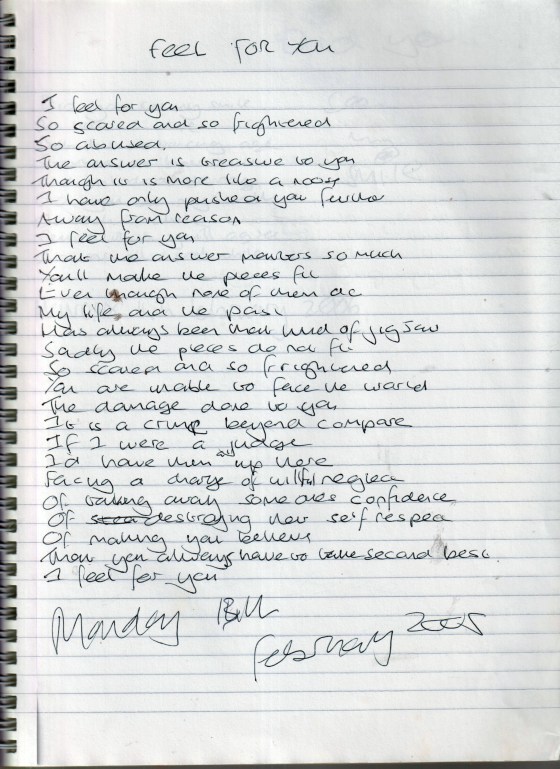 Feel For You
I feel for you
So scared and so frightened
So abused.
The answer is treasure to you
Though it is more like a noose
I have only pushed you further
Away from reason
I feel for you
That the answer matters so much
You'll make the pieces fit
Even though none of them do
My life and the past
Has always been that kind of jigsaw
Sadly the pieces do not fit
So scared and so frightened
You are unable to face the world
The damage done to you
It is a crime beyond compare
If I were a judge
I'd have them up here
Facing a charge of willful neglect
Of taking away someones confidence
Of destroying their self respect
Of making you believe
That you always have to take second best.
I feel for you
Monday 
February 2005